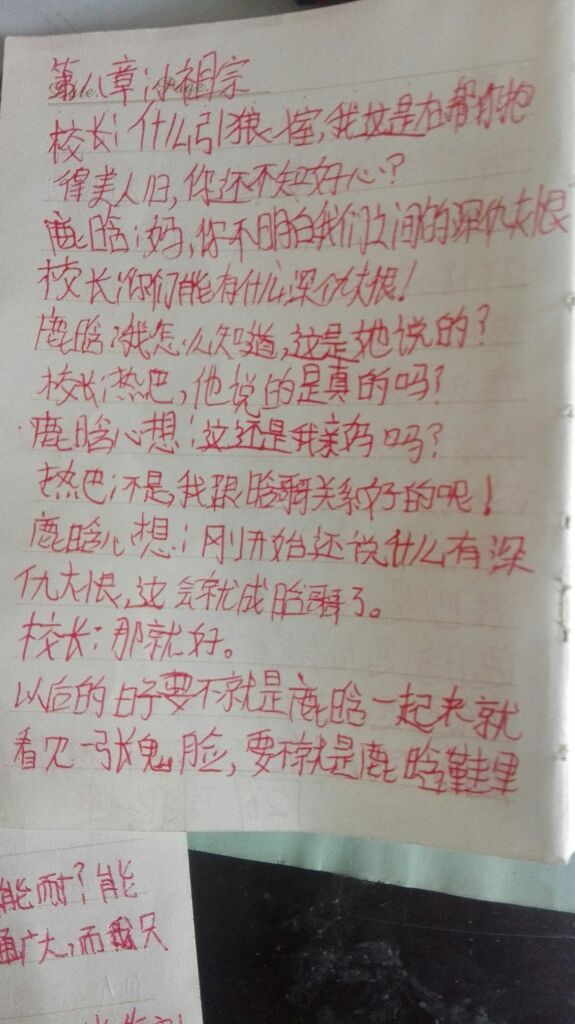 第八章:小祖宗
校长:什么引狼入室,我这是在帮你抱
得美人归,你还不知好心?
鹿晗:妈,你不明白我们之间的深仇大恨
校长:你们能有什么深仇大恨!
鹿晗:我怎么知道,这是她说的?
校长:热巴,他说的是真的吗?
鹿晗心想:这还是我亲妈吗?
热巴:不是,我跟晗哥关系好的呢!
鹿晗心想:刚开始还说什么有深
仇大恨,这会就成晗哥了。
校长:那就好。
以后的日子要不就是鹿晗一起来就
看见一张鬼脸,要不就是鹿晗鞋里
能耐?能
通广大,而我只